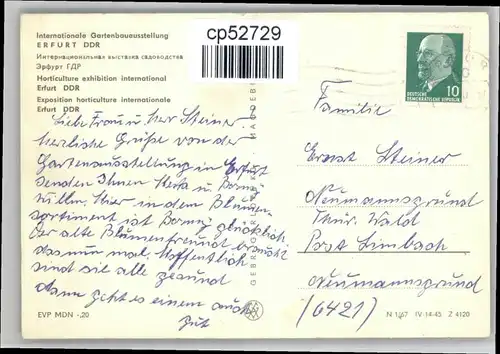 Internationale Gartenbauausstellung
ERFURT DDR
Интернациональная выставка садоводства
Эрфурт ГДР
Horticulture exhibition international
Erfurt DDR
Exposition horticulture internationale
Erfurt DDR
cp52729
10
DEUTSCHE
DEMOKRATISCHE REPUBLIK
Liebe Frau u. Herr Steiner.
Herzliche Grüße von der
Gartenausstellung in Erfurt
senden Ihnen Herta u.
Hier in dem Blumen-
sortiment ist glücklich
der alte Blumenfreund braucht
das nun mal. Hoffentlich
sind sie alle gesund
dann geht es einem auch
gut
Familie
Ernst Steiner
Neumannsgrund
Thür. Wald
Post Limbach
Neumannsgrund
(6421)
EVP MDN -,20
N 1/67 IV-14-45 Z 4120